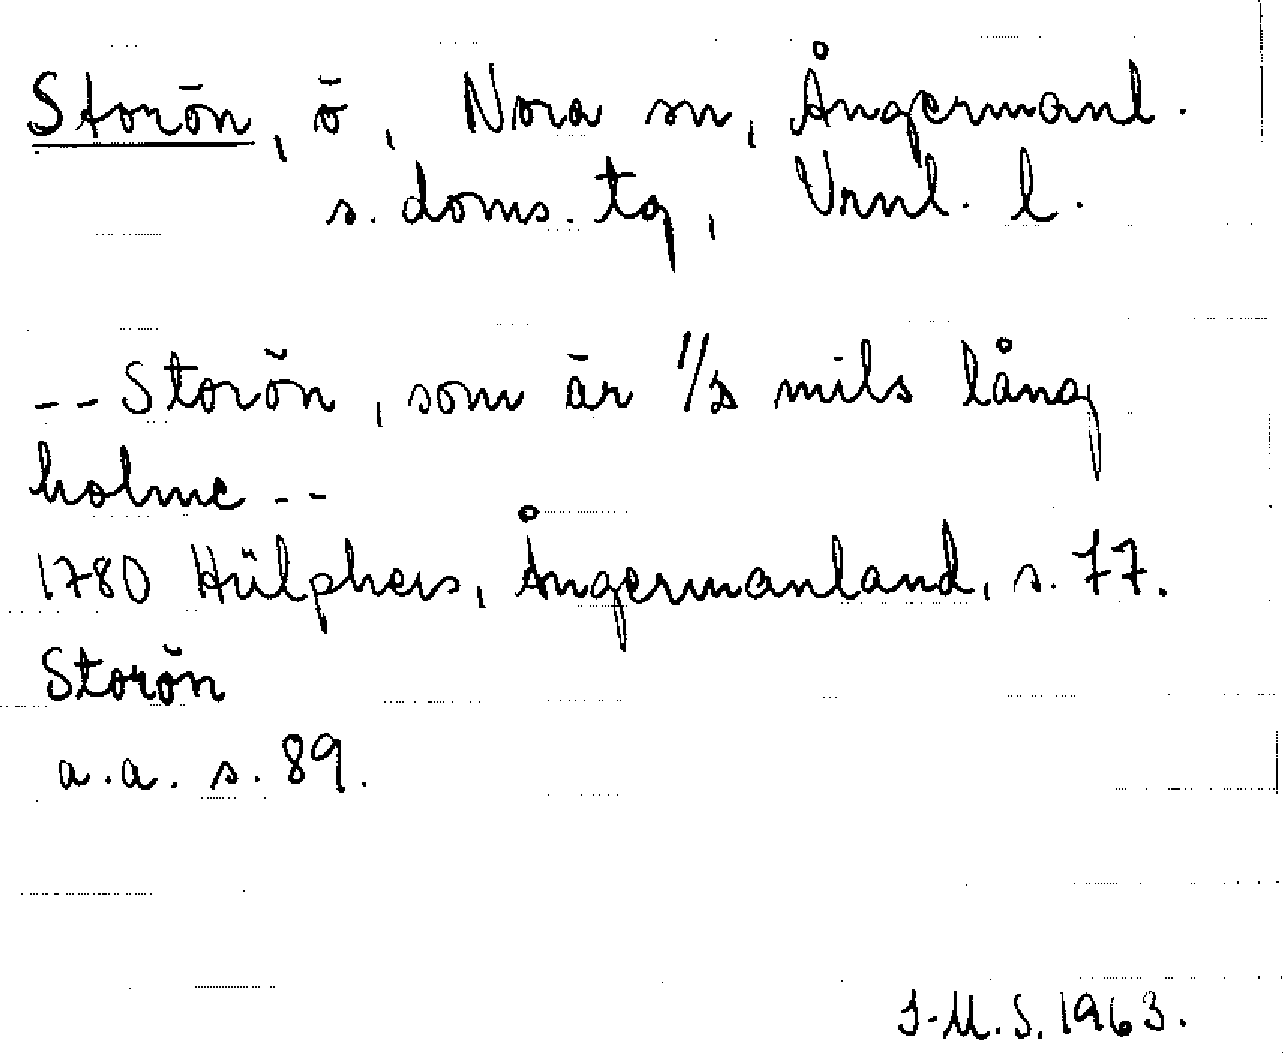 Storön, ö, Nora sn, Ångermanl.
s. doms. tg, Vrnl. l.
-- Storön, som är 1/2 mils lång
holme --
1780 Hülphers, Ångermanland, s. 77.
Storön
a.a. s. 89.
I-M.S. 1963.